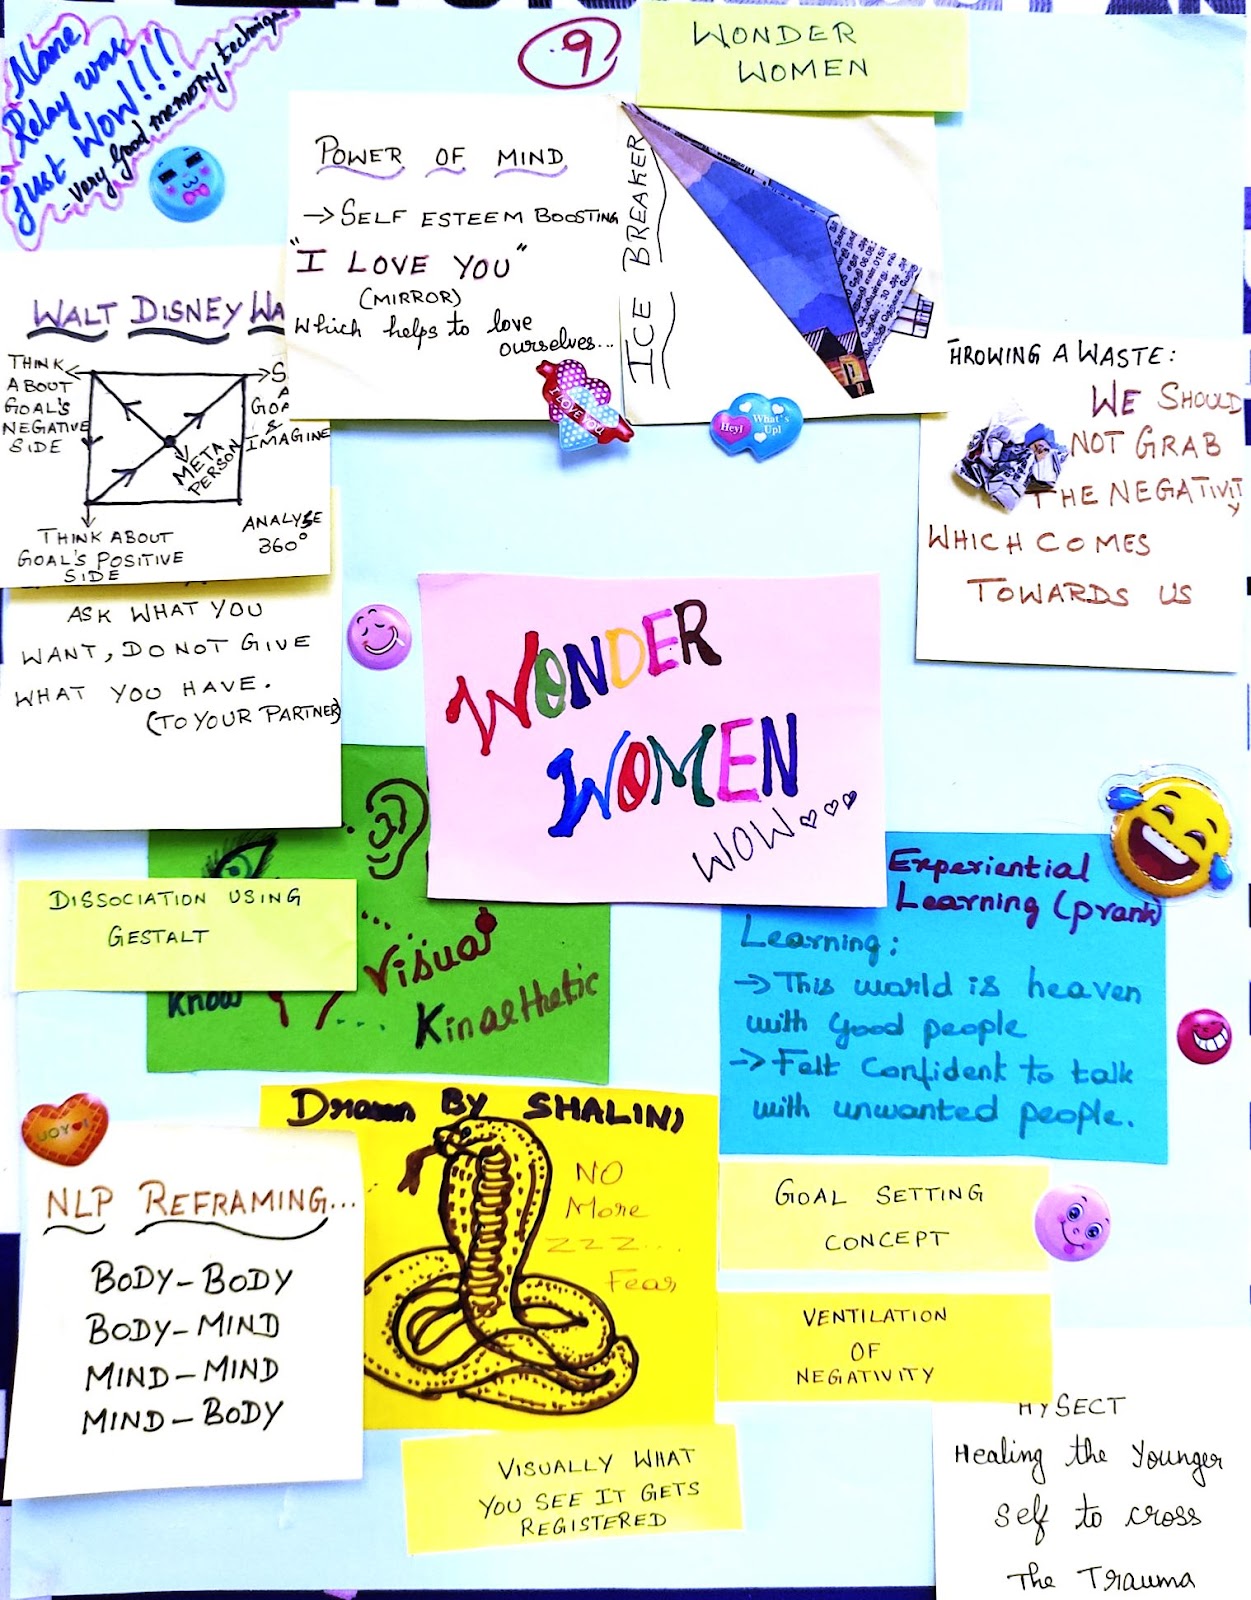 Name
Relay was
Just WOW!!!
- Very Good memory technique
9
WONDER
WOMEN
POWER OF MIND
→ SELF ESTEEM BOOSTING
"I LOVE YOU"
(MIRROR)
Which helps to love
ourselves...
I LOVE YOU
ICE BREAKER
Hey!
What's
Up!
WALT DISNEY WA
THINK
ABOUT
GOAL'S
NEGATIVE
SIDE
S
A
GOA
&
IMAGINE
META
PERSON
THINK ABOUT
GOAL'S POSITIVE
SIDE
ANALYSE
360°
ASK WHAT YOU
WANT, DO NOT GIVE
WHAT YOU HAVE.
(TO YOUR PARTNER)
THROWING A WASTE:
WE SHOULD
NOT GRAB
THE NEGATIVITY
WHICH COMES
TOWARDS US
WONDER
WOMEN
WOW...
DISSOCIATION USING
GESTALT
Know
Visual
Kinaesthetic
Experiential
Learning (prank)
Learning:
→ This world is heaven
with good people
→ Felt Confident to talk
with unwanted people.
Drawn BY SHALINI
NO
More
ZZZ...
Fear
NLP REFRAMING...
BODY-BODY
BODY-MIND
MIND-MIND
MIND-BODY
GOAL SETTING
CONCEPT
VENTILATION
OF
NEGATIVITY
VISUALLY WHAT
YOU SEE IT GETS
REGISTERED
MYSECT
Healing the Younger
Self to cross
The Trauma